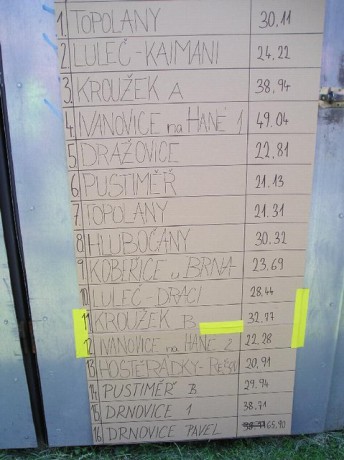 1 TOPOLANY 30.11
2 LULEČ-KAJMANI 24.22
3 KROUŽEK A 38.94
4 IVANOVICE na HANÉ 1 49.04
5 DRAŽOVICE 22.81
6 PUSTIMĚŘ 21.13
7 TOPOLANY 21.31
8 HLUBOČANY 30.32
9 KOBEŘICE u BRNA 23.69
10 LULEČ-DRACI 28.44
11 KROUŽEK B 32.27
12 IVANOVICE na HANÉ 2 22.28
13 HOSTĚRÁDKY-REŠOV 20,91
14 PUSTIMĚŘ B 29.94
15 DRNOVICE 1 38.71
16 DRNOVICE PAVEL 65.90